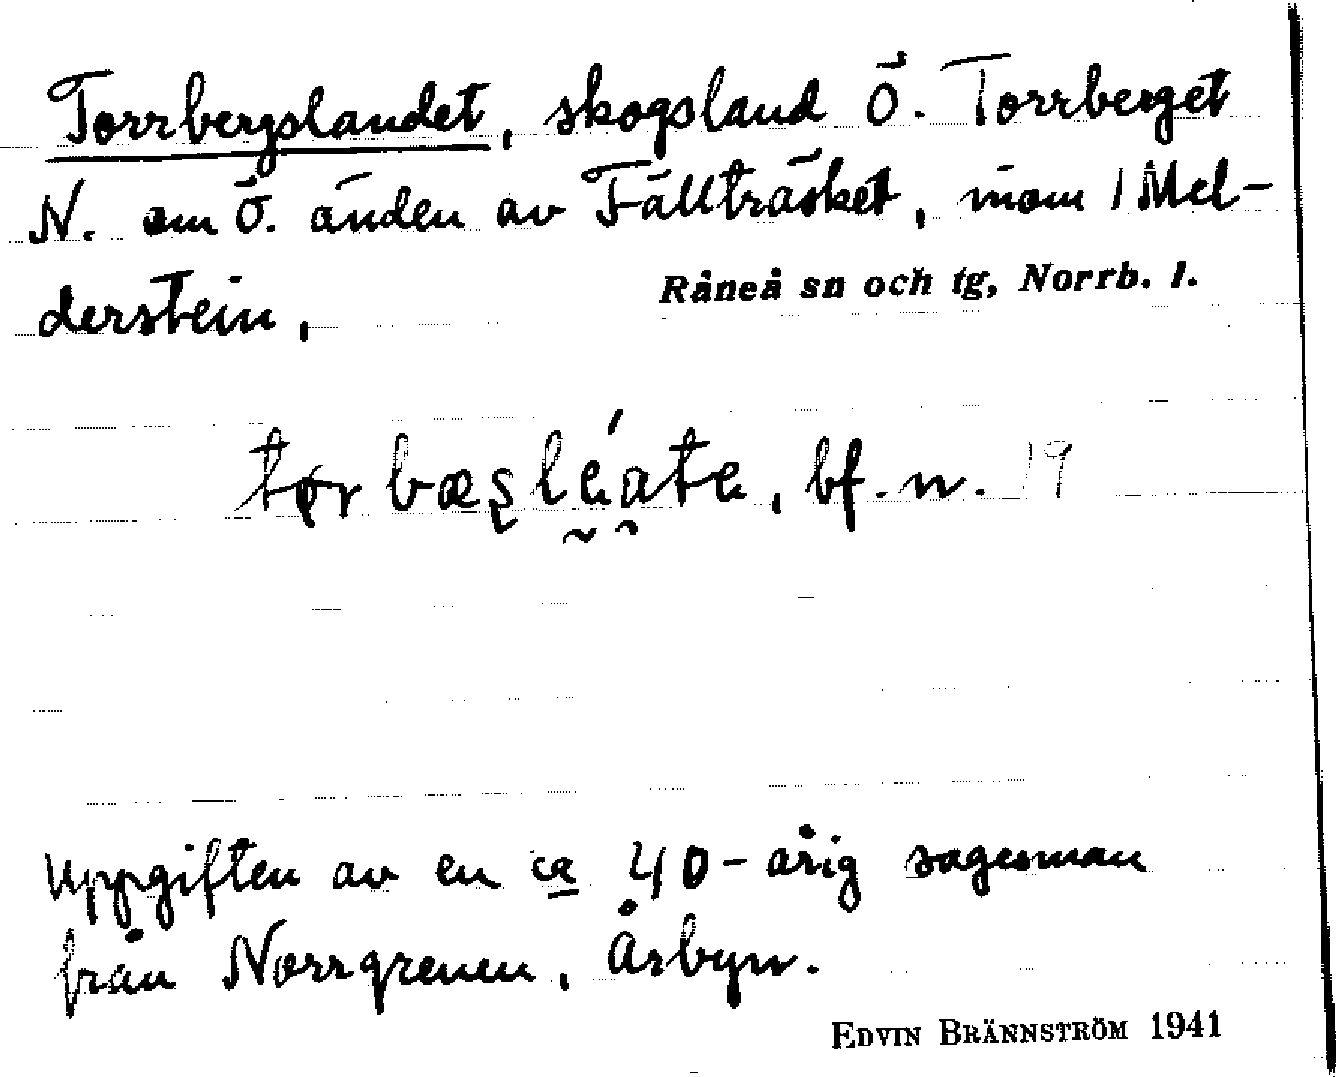 Torrbergslandet, skogsland Ö. Torrberget
N. om Ö. änden av Fällträsket, inom 1 Mel-
derstein,
Råneå sn och tg, Norrb. l.
bf. n. 19
Uppgiften av en ca 40-årig sagesman
från Norrgrenen, Årbyn.
EDVIN BRÄNNSTRÖM 1941